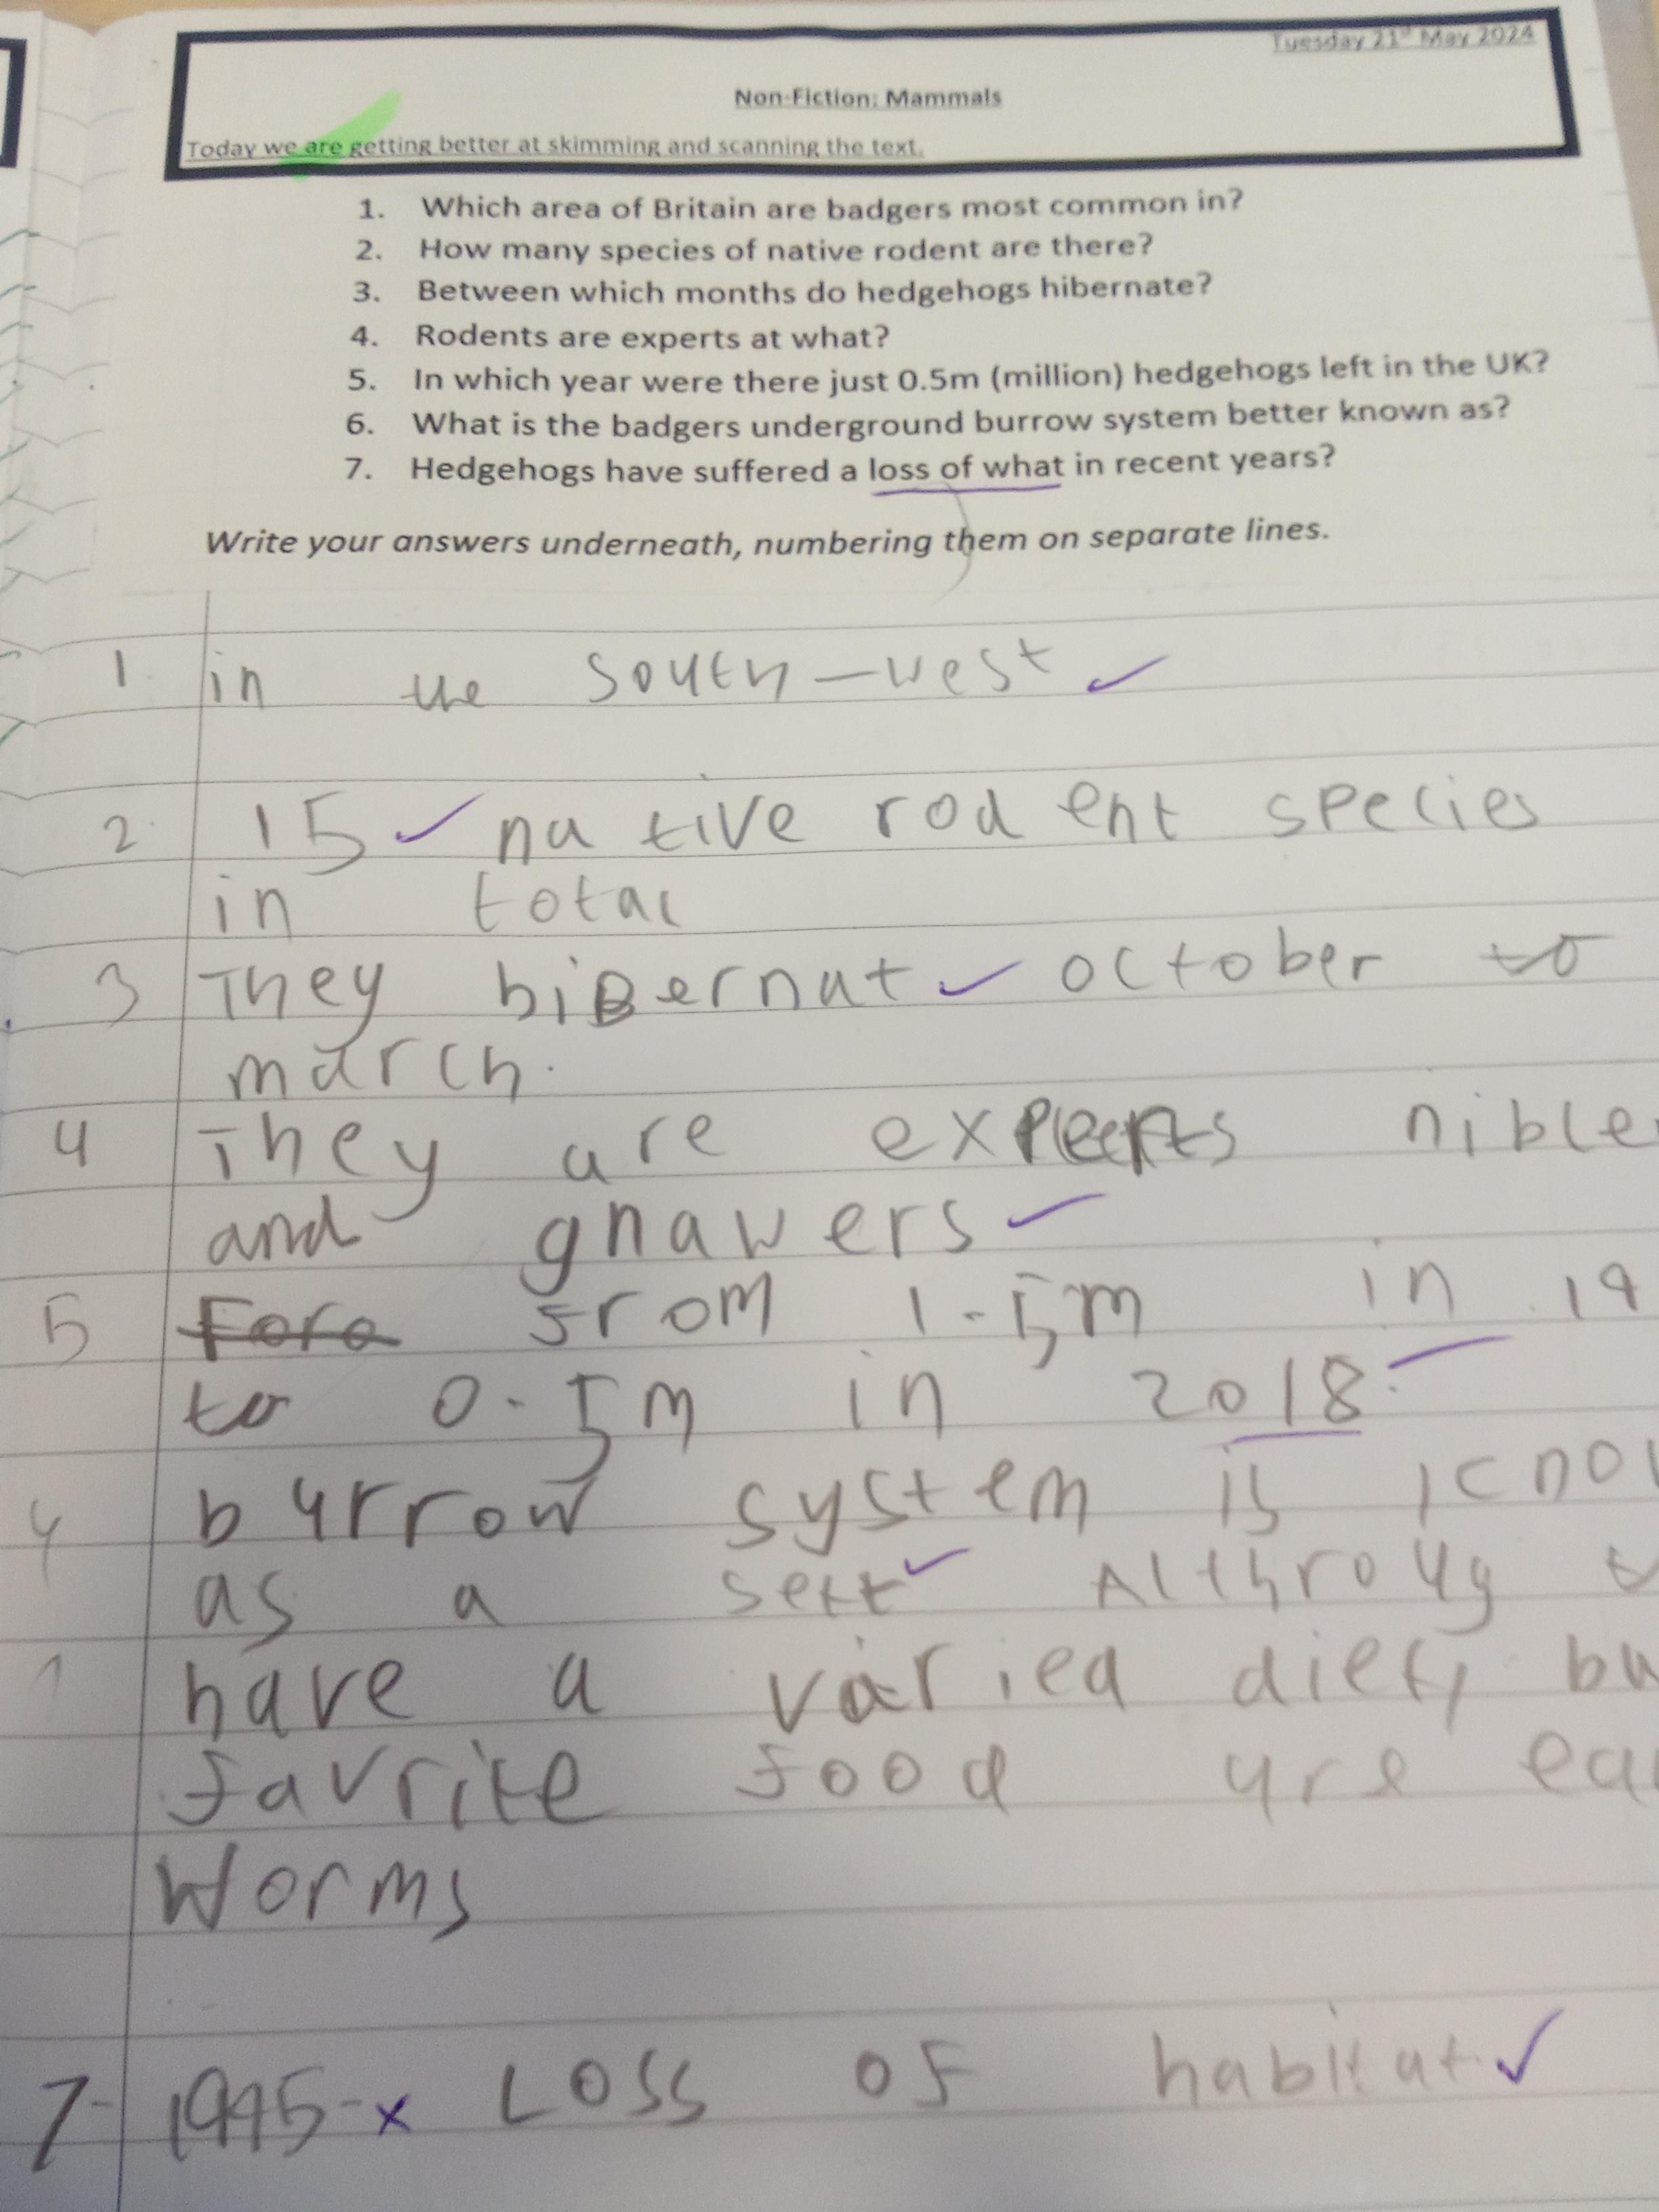 Tuesday 21st May 2024
Non-Fiction: Mammals
Today we are getting better at skimming and scanning the text.
1. Which area of Britain are badgers most common in?
2. How many species of native rodent are there?
3. Between which months do hedgehogs hibernate?
4. Rodents are experts at what?
5. In which year were there just 0.5m (million) hedgehogs left in the UK?
6. What is the badgers underground burrow system better known as?
7. Hedgehogs have suffered a loss of what in recent years?
Write your answers underneath, numbering them on separate lines.
1. in the south-west
2. 15 native rodent species
in total
3 They hibernat october to
march.
4 They are experts nible
and gnawers
5 from 1.5m in 19
to 0.5m in 2018.
burrow system is know
as a sett Althroug
have a varied diet, bu
favrite food are ea
worms
7- Loss of habitat